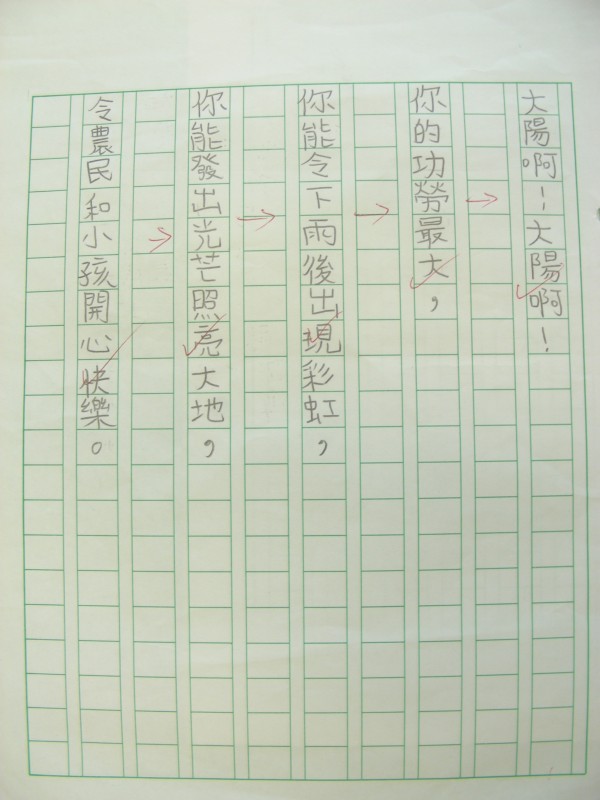 太陽啊！太陽啊！
你的功勞最大，
你能令下雨後出現彩虹，
你能發出光芒照亮大地，
令農民和小孩開心快樂。